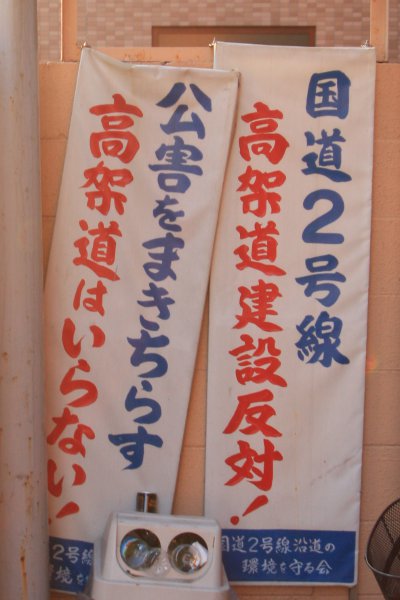 国道2号線
高架道建設反対!
国道2号線沿道の
環境を守る会
公害をまきちらす
高架道はいらない!
2号線
環境を